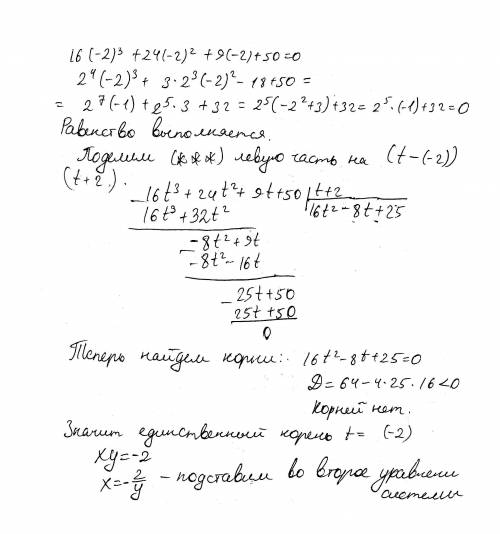 16(-2)³ + 24(-2)² + 9(-2) + 50 = 0
2⁴(-2)³ + 3·2³(-2)² - 18 + 50 =
= 2⁷(-1) + 2⁵·3 + 32 = 2⁵(-2²+3) + 32 = 2⁵·(-1) + 32 = 0
Равенство выполняется.
Поделим (***) левую часть на (t-(-2))
(t+2).
-16t³ + 24t² + 9t + 50 | t+2
16t³ + 32t² 16t² - 8t + 25
-8t² + 9t
-8t² - 16t
- 25t + 50
25t + 50
0
Теперь найдем корни: 16t² - 8t + 25 = 0
D = 64 - 4·25·16 < 0
Корней нет.
Значит единственный корень t = (-2)
xy = -2
x = -2/y - подставим во второе уравнени
системы